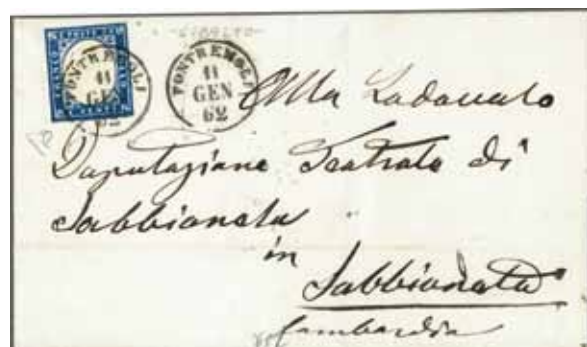 PONTREMOLI
11
GEN
62
PONTREMOLI
11
GEN
62
Alla Lodevole
Deputazione Teatrale di
Sabbioneta
in
Sabbioneta
Lombardia